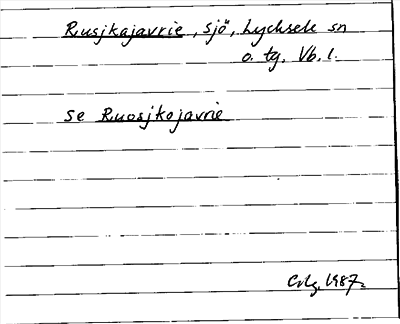 Rusjkajavrie, sjö, Lycksele sn
o. tg. Vb. l.
se Ruosjkojavrie
1987.